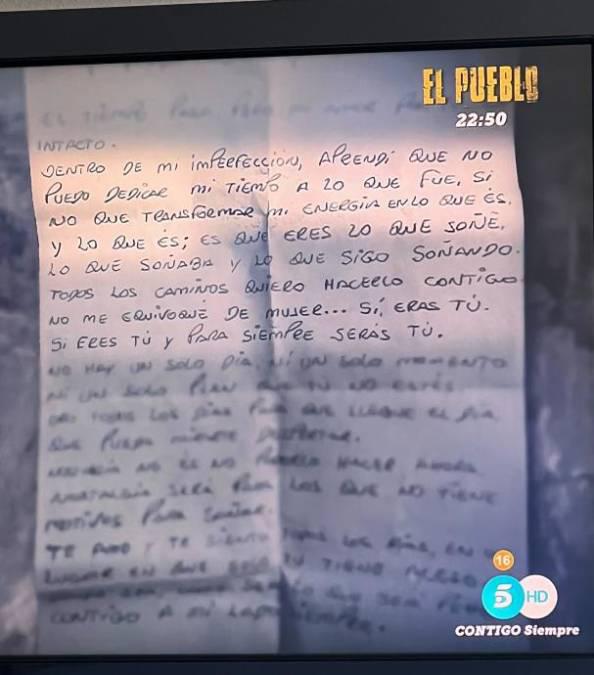 EL PUEBLO
22:50
EL TIEMPO PARA
INTACTO.
DENTRO DE MI IMPERFECCIÓN, APRENDÍ QUE NO
PUEDO DEDICAR MI TIEMPO A LO QUE FUE, SI
NO QUE TRANSFORMAR MI ENERGIA EN LO QUE ÉS.
Y LO QUE ÉS; ES QUE ERES LO QUE SOÑÉ,
LO QUE SOÑABA Y LO QUE SIGO SOÑANDO.
TODOS LOS CAMINOS QUIERO HACERLO CONTIGO
NO ME EQUIVOQUÉ DE MUJER... SÍ, ERAS TÚ.
SI ERES TÚ Y PARA SIEMPRE SERÁS TÚ.
NO HAY UN SOLO DÍA, NI UN SOLO MOMENTO
NI UN SOLO PLAN QUE TÚ NO ESTÉS
TODOS LOS DÍAS PARA QUE LLEGUE EL DÍA
QUE PUEDA
NO ES NO PODERLO HACER AHORA
SERÁ PARA LOS QUE NO TIENE
MOTIVOS PARA
TE AMO Y TE SIENTO TODOS LOS DÍAS, EN UN
LUGAR EN QUE SOLO TÚ TIENE
CONTIGO A MI
16
5 HD
CONTIGO Siempre